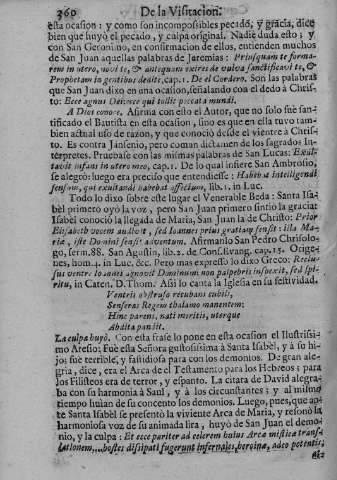 360 De la Visitacion.
esta ocasion: y como son incompossibles pecado, y gracia, dice
bien que huyò el pecado, y culpa original. Nadie duda esto; y
con San Geronimo, en confirmacion de ellos, entienden muchos
de San Juan aquellas palabras de Jeremias: Priusquam te forma-
rem in utero, novi te, & antequam exires de vulva sanctificavi te, &
Prophetam in gentibus dedi te, cap.1. De el Cordero. Son las palabras
que San Juan dixo en una ocasion, señalando con el dedo à Chris-
to: Ecce agnus Dei: ecce qui tollit peccata mundi.
A Dios conoce. Afirma con esto el Autor, que no solo fuè san-
tificado el Bautista en esta ocasion, sino es que en ella tuvo tam-
bien actual uso de razon, y que conociò desde el vientre à Chris-
to. Es contra Jansenio, pero comun dictamen de los sagrados In-
terpretes. Pruebase con las mismas palabras de San Lucas: Exul-
tavit infans in utero meo, cap.1. De lo qual infiere San Ambrosio,
se alegrò: luego era preciso que entendiesse: Habebat intelligendi
sensum, qui exultandi habebat affectum, lib. 1. in Luc.
Todo lo dixo sobre este lugar el Venerable Beda: Santa Isa-
bèl primero oyò la voz, pero San Juan primero sintiò la gracia:
Isabèl conociò la llegada de Maria, San Juan la de Christo: Prior
Elisabeth vocem audivit, sed Ioannes prius gratiam sensit: illa Ma-
riæ, iste Domini sensit adventum. Afirmanlo San Pedro Chrisolo-
go, serm.88. San Agustin, lib. 2. de Cons. Evang. cap. 15. Orige-
nes, hom. 4. in Luc. &c. Pero mas expresso lo dixo Greco: Reclu-
sus ventr. Ioannes agnovit Dominum non palpebris inspexit, sed spi-
ritu, in Caten. D. Thom. Assi lo canta la Iglesia en su festividad.
Ventris obstruso recubans cubili,
Senseras Regem thalamo manentem;
Hinc parens, nati meritis, uterque
Abdita pandit.
La culpa huyò. Con esta frase lo pone en esta ocasion el Ilustrissi-
mo Aresio: Fuè esta Señora gustosissima à Santa Isabèl, y à su hi-
jo; fuè terrible, y fastidiosa para con los demonios. De gran ale-
gria, dice, era el Arca de el Testamento para los Hebreos; para
los Filisteos era de terror, y espanto. La citara de David alegra-
ba con su harmonìa à Saul, y à los circunstantes; y al mismo
tiempo huìan de su concento los demonios. Luego, pues, que an-
te Santa Isabèl se presentò la viviente Arca de Maria, y resonò la
harmoniosa voz de su animada lira, huyò de San Juan el demo-
nio, y la culpa: Et ecce pariter ad celerem huius Arcæ misticæ trans-
lationem....hostes dissipati fugerunt infernales, heroinæ, adeo potentis,